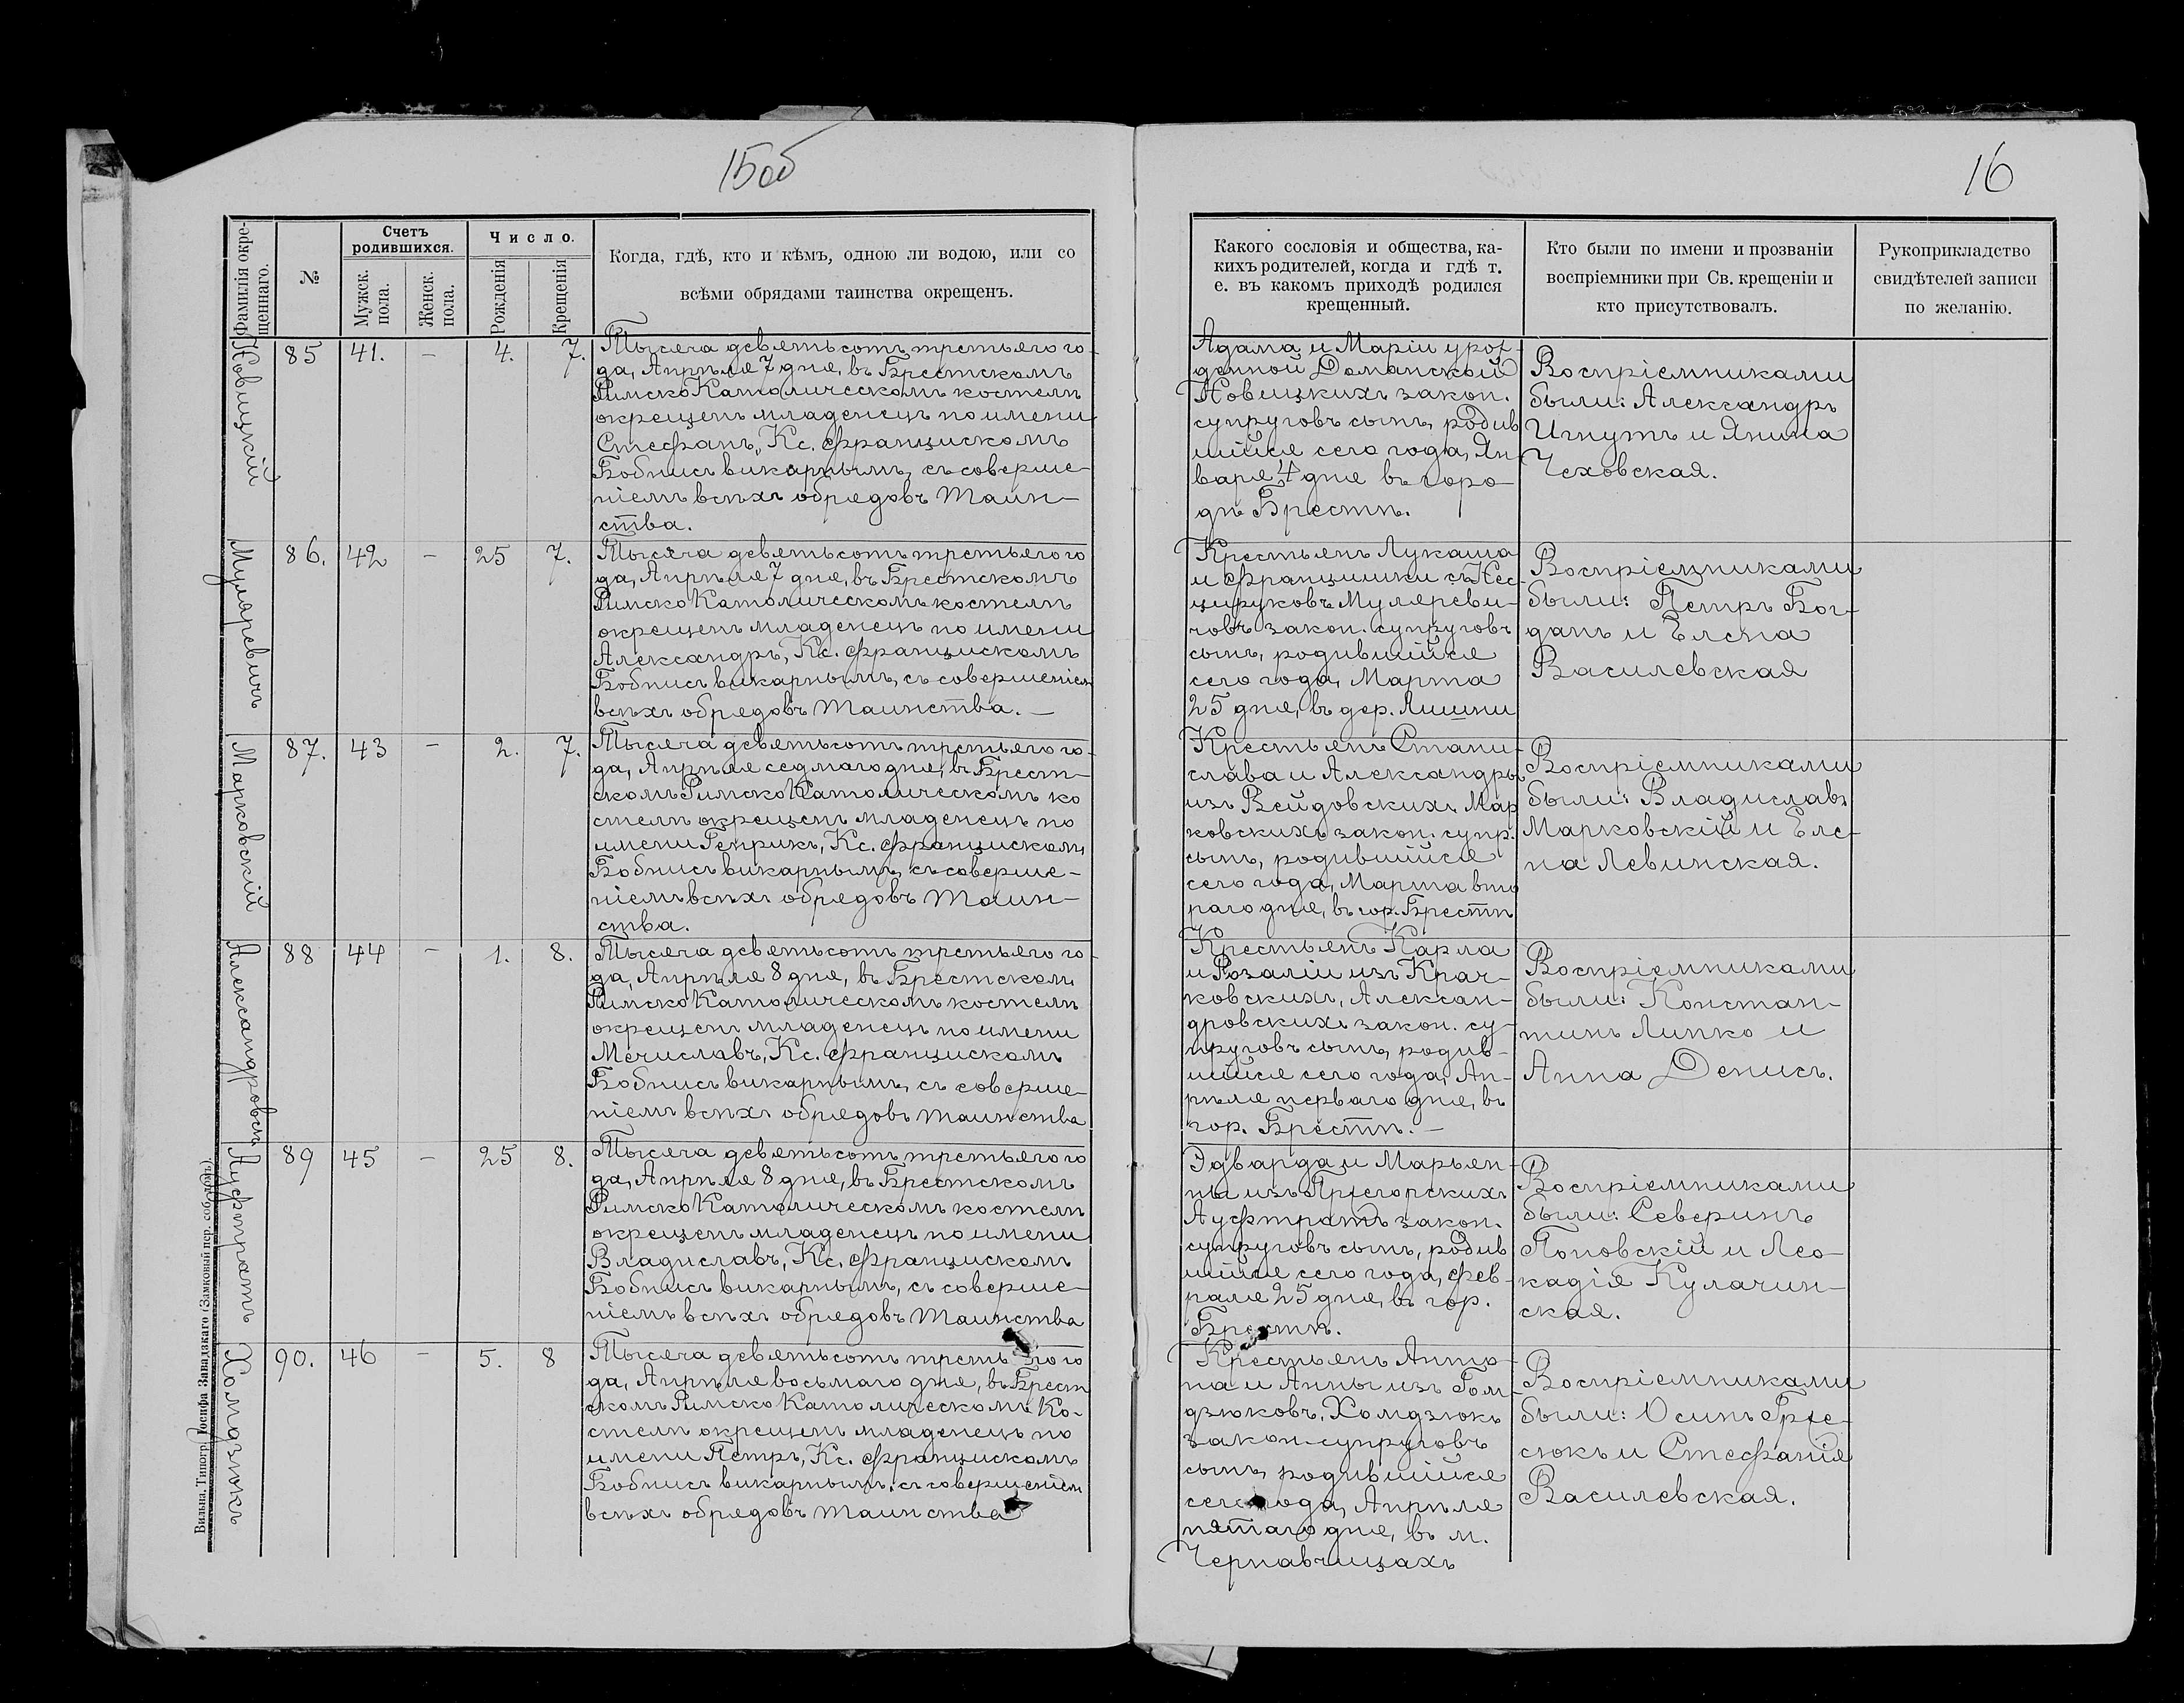 15об
Фамилія окре-
щеннаго.
№
Счетъ
родившихся.
Мужск.
пола.
Женск.
пола.
Число.
Рожденія
Крещенія
Когда, гдѣ, кто и кѣмъ, одною ли водою, или со
всѣми обрядами таинства окрещенъ.
Новицкій
85
41.
—
4.
7.
Тысяча девятьсотъ третьяго го-
да, Апрѣля 7 дня, въ Брестскомъ
Римско Католическомъ костелѣ
окрещенъ младенецъ по имени
Стефанъ, Кс. Францискомъ
Бобнисъ викарнымъ, съ соверше-
ніемъ всѣхъ обрядовъ Таин-
ства.
Муляревичъ
86.
42
—
25
7.
Тысяча девятьсотъ третьяго го
да, Апрѣля 7 дня, въ Брестскомъ
Римско Католическомъ костелѣ
окрещенъ младенецъ по имени
Александръ, Кс. Францискомъ
Бобнисъ викарнымъ, съ совершеніем
всѣхъ обрядовъ Таинства. —
Марковскій
87.
43
—
2.
7.
Тысяча девятьсотъ третьяго го-
да, Апрѣля седмаго дня, въ Брест-
скомъ Римско Католическомъ ко
стелѣ окрещенъ младенецъ по
имени Генрикъ, Кс. Францискомъ
Бобнисъ викарнымъ, съ соверше-
ніемъ всѣхъ обрядовъ Таин-
ства.
Александровск.
88
44
—
1.
8.
Тысяча девятьсотъ третьяго го-
да, Апрѣля 8 дня, въ Брестскомъ
Римско Католическомъ костелѣ
окрещенъ младенецъ по имени
Мечиславъ, Кс. Францискомъ
Бобнисъ викарнымъ, съ соверше-
ніемъ всѣхъ обрядовъ таинства
Ауфтратъ
89
45
—
25
8.
Тысяча девятьсотъ третьяго го
да, Апрѣля 8 дня, въ Брестскомъ
Римско Католическомъ костелѣ
окрещенъ младенецъ по имени
Владиславъ, Кс. Францискомъ
Бобнисъ викарнымъ, съ соверше-
ніемъ всѣхъ обрядовъ Таинства
Хомдзюкъ
90.
46
—
5.
8
Тысяча девятьсотъ третьяго го
да, Апрѣля восьмаго дня, въ Брест
скомъ Римско Католическомъ Ко-
стелѣ окрещенъ младенецъ по
имени Петръ, Кс. Францискомъ
Бобнисъ викарнымъ, съ совершеніем
всѣхъ обрядовъ таинства
Вильна. Типогр. Іосифа Завадзкаго (Замковый пер. соб. домъ).
16
Какого сословія и общества, ка-
кихъ родителей, когда и гдѣ т.
е. въ какомъ приходѣ родился
крещенный.
Кто были по имени и прозваніи
воспріемники при Св. крещеніи и
кто присутствовалъ.
Рукоприкладство
свидѣтелей записи
по желанію.
Адама и Маріи урож-
денной Доманской
Новицкихъ закон.
супруговъ сынъ, родив
шійся сего года, Ян-
варя 4 дня въ горо-
дѣ Брестѣ.
Воспріемниками
были: Александръ
Игнутъ и Янина
Чеховская.
Крестьянъ Лукаша
и Францишки съ Нес-
цируковъ Муляреви-
човъ закон. супруговъ
сынъ, родившійся
сего года, Марта
25 дня, въ дер. Лишни
Воспріемниками
были: Петръ Бог-
данъ и Елена
Василевская
Крестьянъ Стани-
слава и Александры
изъ Вейдовскихъ Мар
ковскихъ закон. супр.
сынъ, родившійся
сего года, Марта вто
раго дня, въ гор. Брестѣ
Воспріемниками
были: Владиславъ
Марковскій и Еле-
на Левинская.
Крестьянъ Карла
и Розаліи изъ Крач-
ковскихъ, Алексан-
дровскихъ закон. су-
пруговъ сынъ, родив-
шійся сего года, Ап-
рѣля перваго дня, въ
гор. Брестѣ. —
Воспріемниками
были: Констан-
тинъ Липко и
Анна Денисъ.
Эдварда и Марьян-
ны изъ Яжгорскихъ
Ауфтратъ закон.
супруговъ сынъ, родив
шійся сего года, Фев-
раля 25 дня, въ гор.
Брестѣ.
Воспріемниками
были: Северинъ
Поповскій и Лео-
кадія Кулачин-
ская.
Крестьянъ Анто-
на и Анны изъ Гом-
дзюковъ, Хомдзюкъ
закон. супруговъ
сынъ, родившійся
сего года, Апрѣля
пятаго дня, въ м.
Чернавчицахъ
Воспріемниками
были: Осипъ Грже-
сюкъ и Стефанія
Василевская.